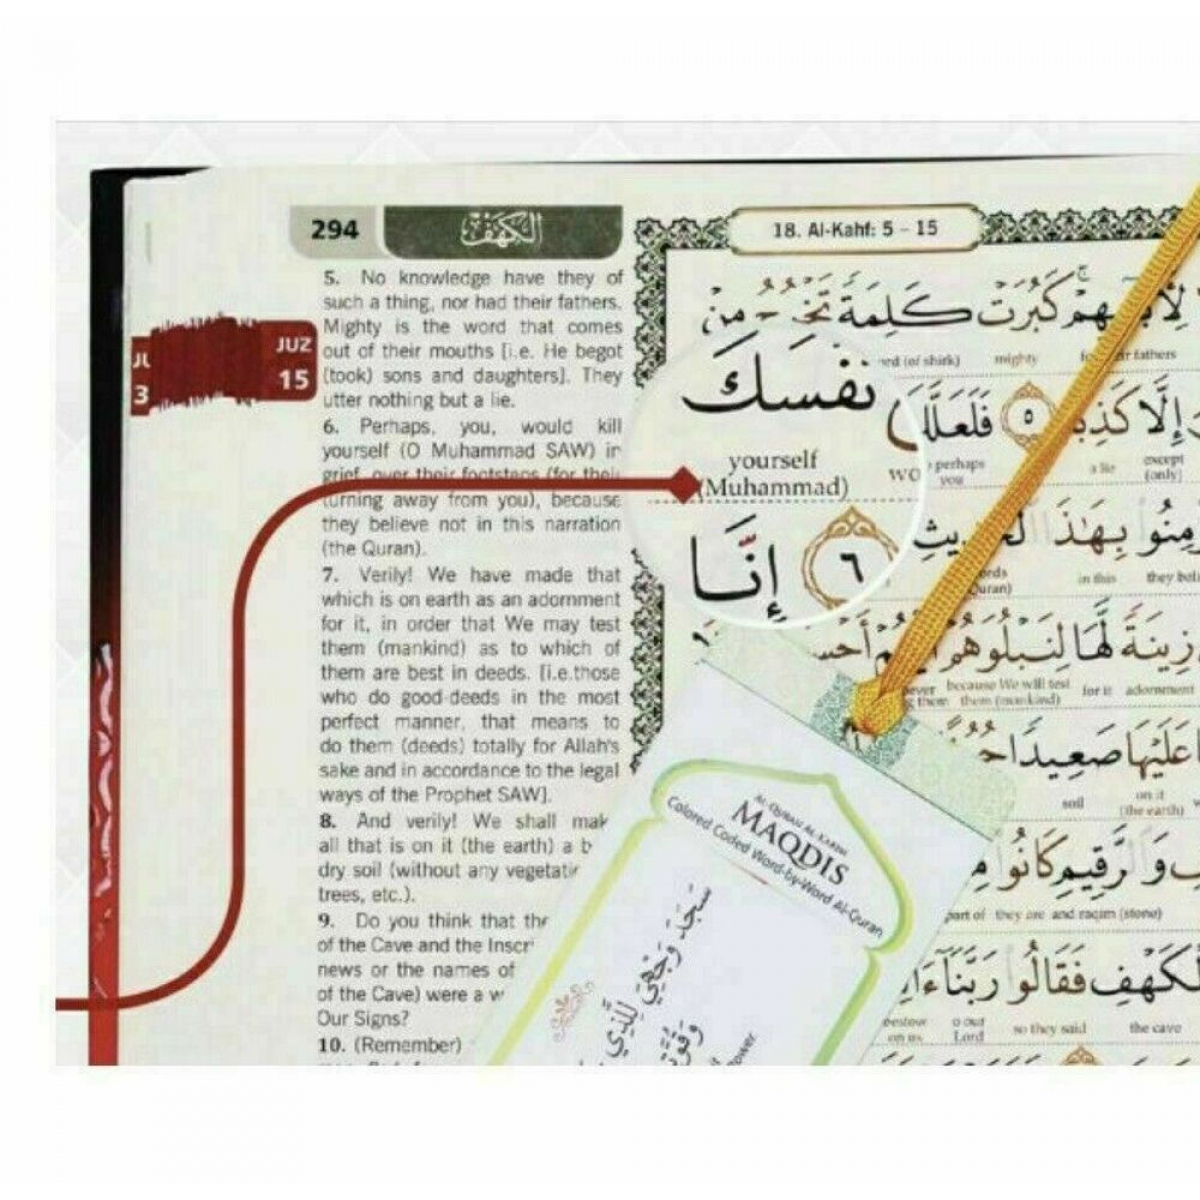 294
الكهف
18. Al-Kahf: 5 - 15
JUZ
15
3
5. No knowledge have they of
such a thing, nor had their fathers.
Mighty is the word that comes
out of their mouths [i.e. He begot
(took) sons and daughters]. They
utter nothing but a lie.
6. Perhaps, you, would kill
yourself (O Muhammad SAW) in
grief, over their footsteps (for their
turning away from you), because
they believe not in this narration
(the Quran).
7. Verily! We have made that
which is on earth as an adornment
for it, in order that We may test
them (mankind) as to which of
them are best in deeds. [i.e.those
who do good deeds in the most
perfect manner, that means to
do them (deeds) totally for Allah's
sake and in accordance to the legal
ways of the Prophet SAW].
8. And verily! We shall mak
all that is on it (the earth) a b
dry soil (without any vegetati
trees, etc.).
9. Do you think that the
of the Cave and the Inscri
news or the names of
of the Cave) were a w
Our Signs?
10. (Remember)
كَبُرَتْ كَلِمَةً
(of shirk) mighty fathers
نَفْسَكَ
إِلَّا كَذِبًا ٥ فَلَعَلَّكَ
yourself
(Muhammad)
perhaps
you
a lie
except
(only)
إِنَّا ٦
بِهَٰذَا
in this
زِينَةً لَّهَا لِنَبْلُوَهُمْ
because We will test
them (mankind)
for it adornment
عَلَيْهَا صَعِيدًا
soil
on it
(the earth)
وَالرَّقِيمِ كَانُوا
part of they are and raqim (stone)
الْكَهْفِ فَقَالُوا رَبَّنَا
bestow
on us
o our
Lord
so they said
the cave
AL-QURAN AL-KARIM
MAQDIS
Colored Coded Word-by-Word Al-Quran
سَجَدَ وَجْهِيَ لِلَّذِي